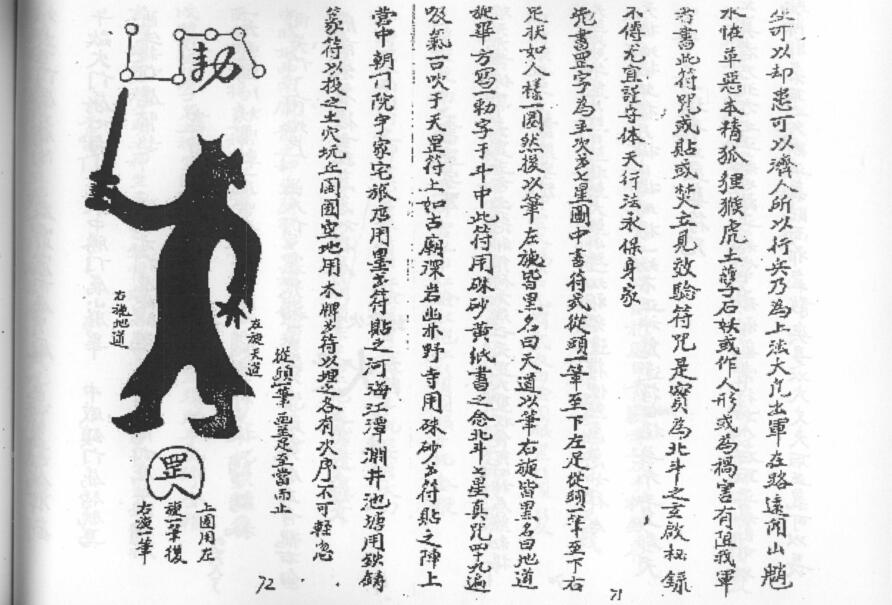 可以却患可以濟人所以行兵乃為上法大凡出軍在路遠聞山魈
水怪草惡木精狐狸猴虎土孽石妖或作人形或為禍害有阻我軍
書此符咒或貼或焚立見效驗符咒是寶為北斗之玄啟秘錄
不傳尤宜謹守体天行法永保身家
先書罡字為主次步七星圖中書符式從頭一筆至下左足從頭一筆至下右
足狀如人樣一圈然後以筆左旋皆黑名曰天道以筆右旋皆黑名曰地道
旋畢方寫一勅字于斗中此符用硃砂黃紙書之念北斗七星真咒四十九遍
吸氣一口吹于天罡符上如古廟深岩幽林野寺用硃砂書符貼之陣上
營中朝门院宇家宅旅店用墨書符貼之河海江潭澗井池塘用鉄鑄
篆符以投之土穴坑丘園囿空地用木牌書符以埋之各有次序不可輕忽
從頭一筆画至足至當而止
勅
左旋天道
右旋地道
罡
上圈用左
旋一筆後
右旋一筆
72
71